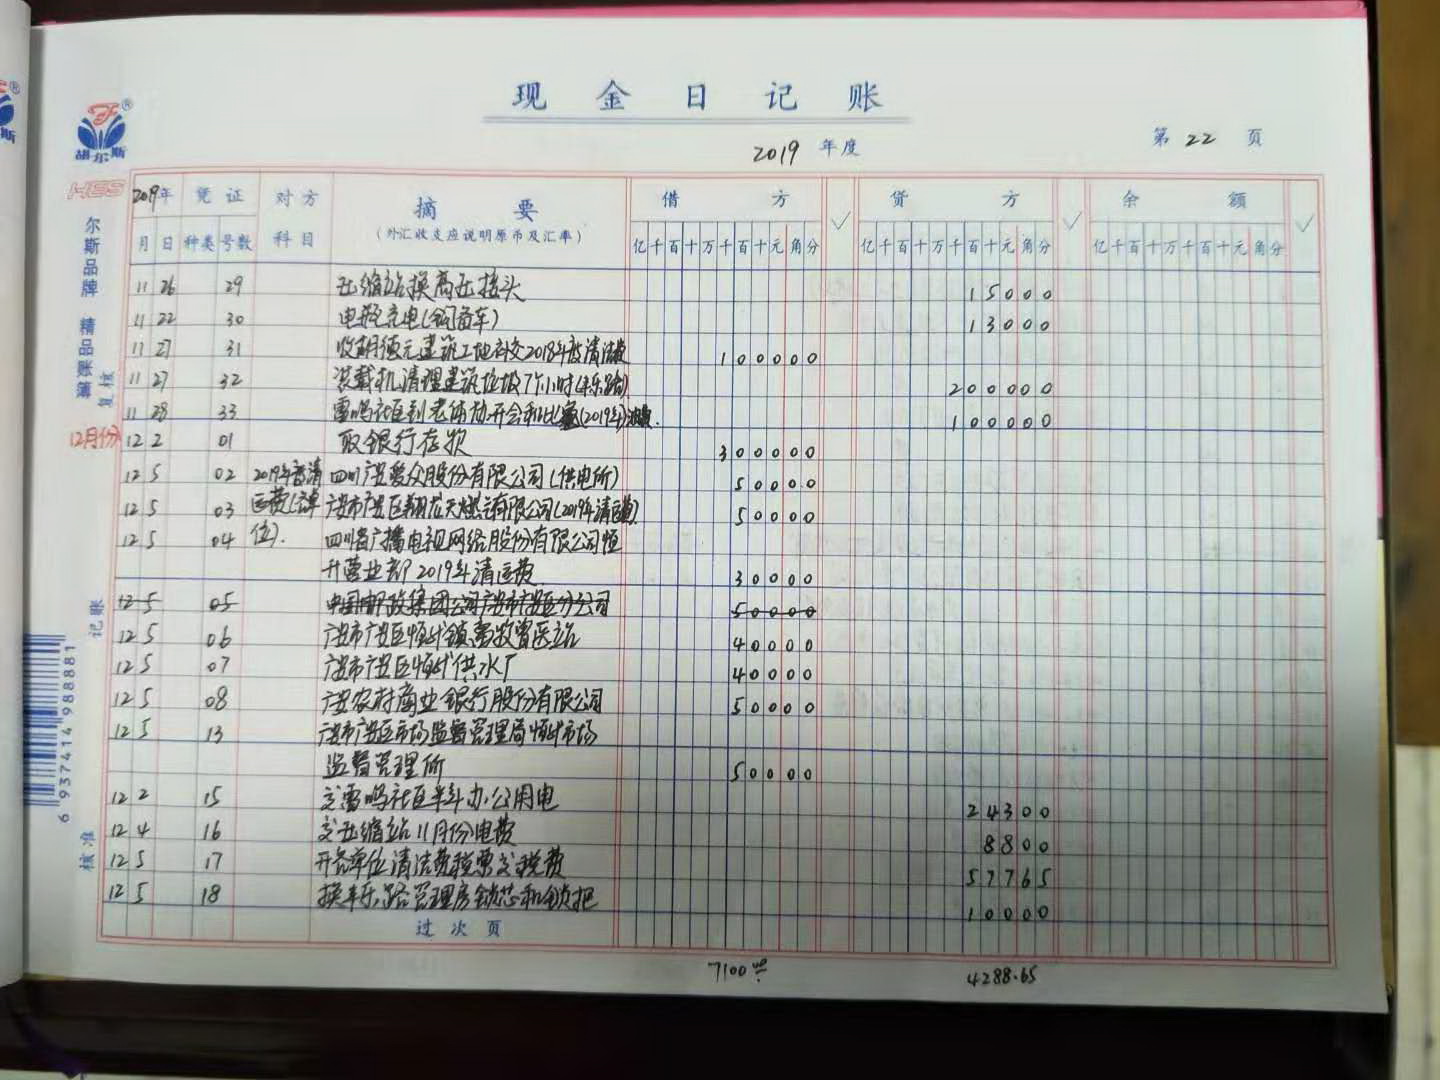 现金日记账
2019 年度
第 22 页
胡尔斯
HES
尔斯品牌 精品课簿
复核
记账
核准
6 937414 988881
2019年 凭证 对方科目 摘要 借方 贷方 余额
(外汇收支应说明原币及汇率)
月 日 种类 号数 亿千百十万千百十元角分 亿千百十万千百十元角分 亿千百十万千百十元角分
11 26 29 压缩站换高压接头 15000
11 22 30 13000
11 27 31 100000
11 27 32 200000
11 28 33 100000
12月份
12 2 01 取银行存款 300000
12 5 02 四川广安爱众股份有限公司(供电所) 50000
12 5 03 广安市广安区翔龙天燃气有限公司(2019年清运费) 50000
12 5 04 四川省广播电视网络股份有限公司恒
升营业部2019年清运费 30000
12 5 05 中国邮政集团公司广安市广安区分公司 50000
12 5 06 广安市广安区恒升镇畜牧兽医站 40000
12 5 07 广安市广安区恒升供水厂 40000
12 5 08 广安农村商业银行股份有限公司 50000
12 5 13 广安市广安区市场监督管理局恒升市场
监督管理所 50000
12 2 15 交雷鸣社区 办公用电 24300
12 4 16 交压缩站11月份电费 8800
12 5 17 开各单位清洁费税票交税费 57765
12 5 18 路管理房锁芯和锁把 10000
过次页
7100.00 4288.65